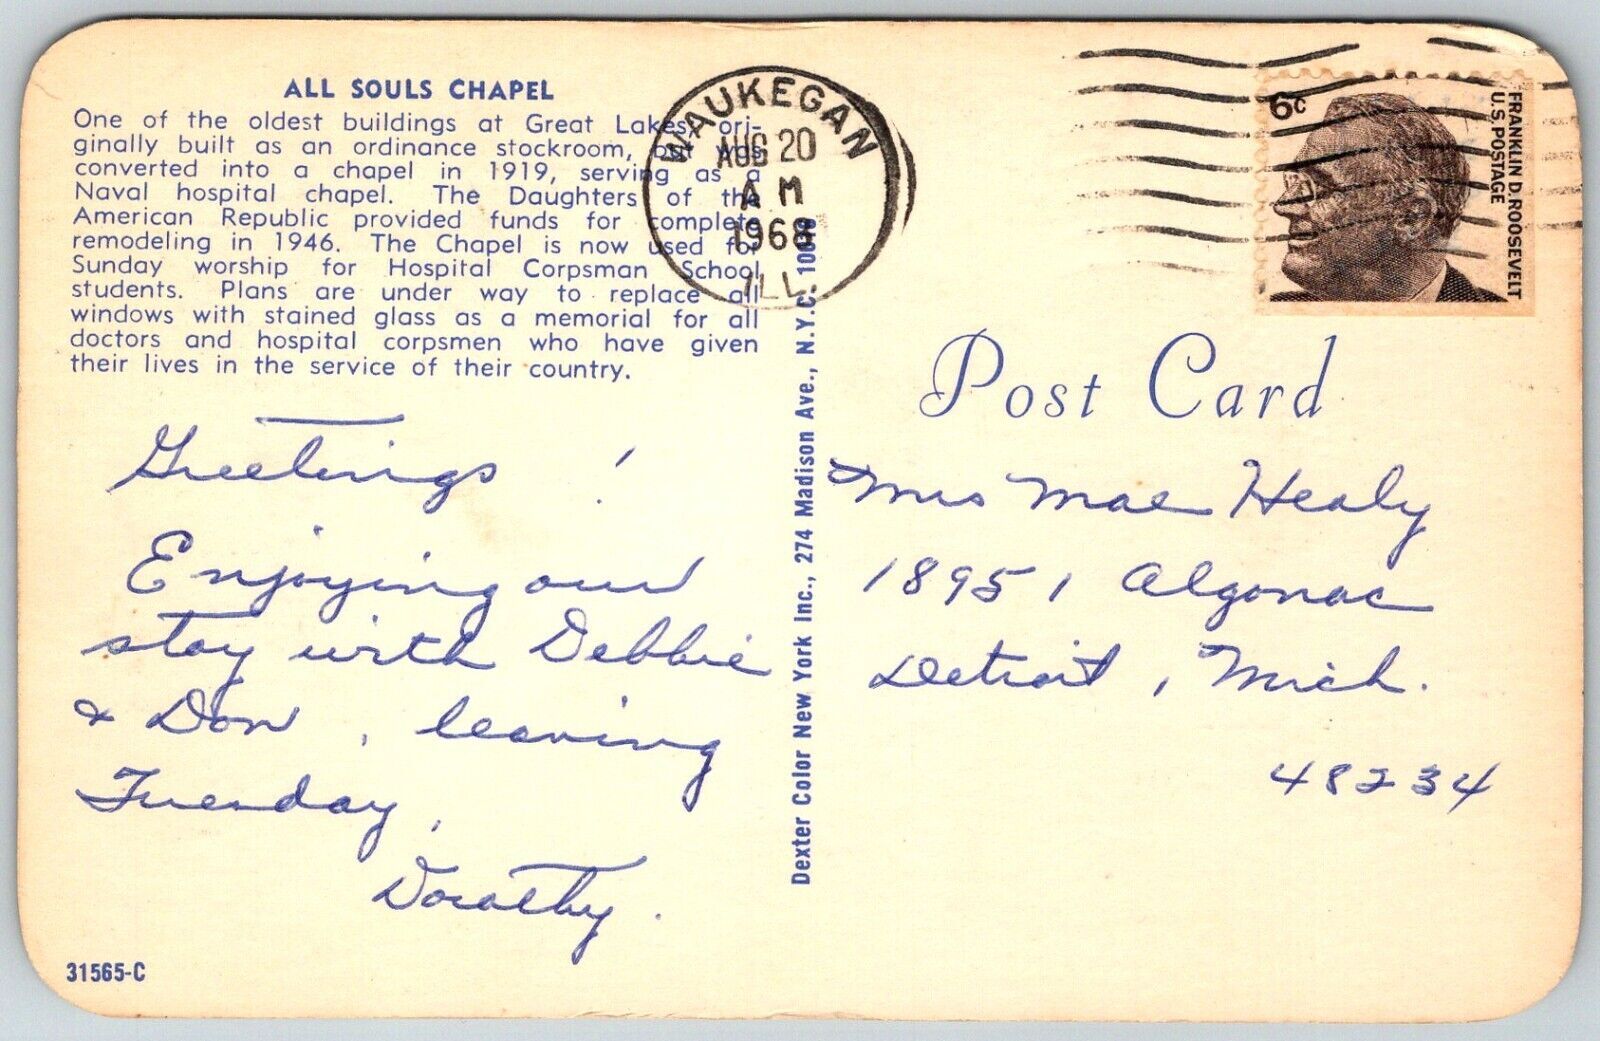 ALL SOULS CHAPEL
One of the oldest buildings at Great Lakes, ori-
ginally built as an ordinance stockroom, but was
converted into a chapel in 1919, serving as a
Naval hospital chapel. The Daughters of the
American Republic provided funds for complete
remodeling in 1946. The Chapel is now used for
Sunday worship for Hospital Corpsman School
students. Plans are under way to replace all
windows with stained glass as a memorial for all
doctors and hospital corpsmen who have given
their lives in the service of their country.
WAUKEGAN
AUG 20
AM
1968
ILL.
6c
FRANKLIN D. ROOSEVELT
U.S. POSTAGE
Post Card
Greetings!
Enjoying our
stay with Debbie
& Don, leaving
Tuesday,
Dorothy.
31565-C
Dexter Color New York Inc., 274 Madison Ave., N.Y.C.
Mrs Mae Healy
18951 Algonac
Detroit, Mich.
48234